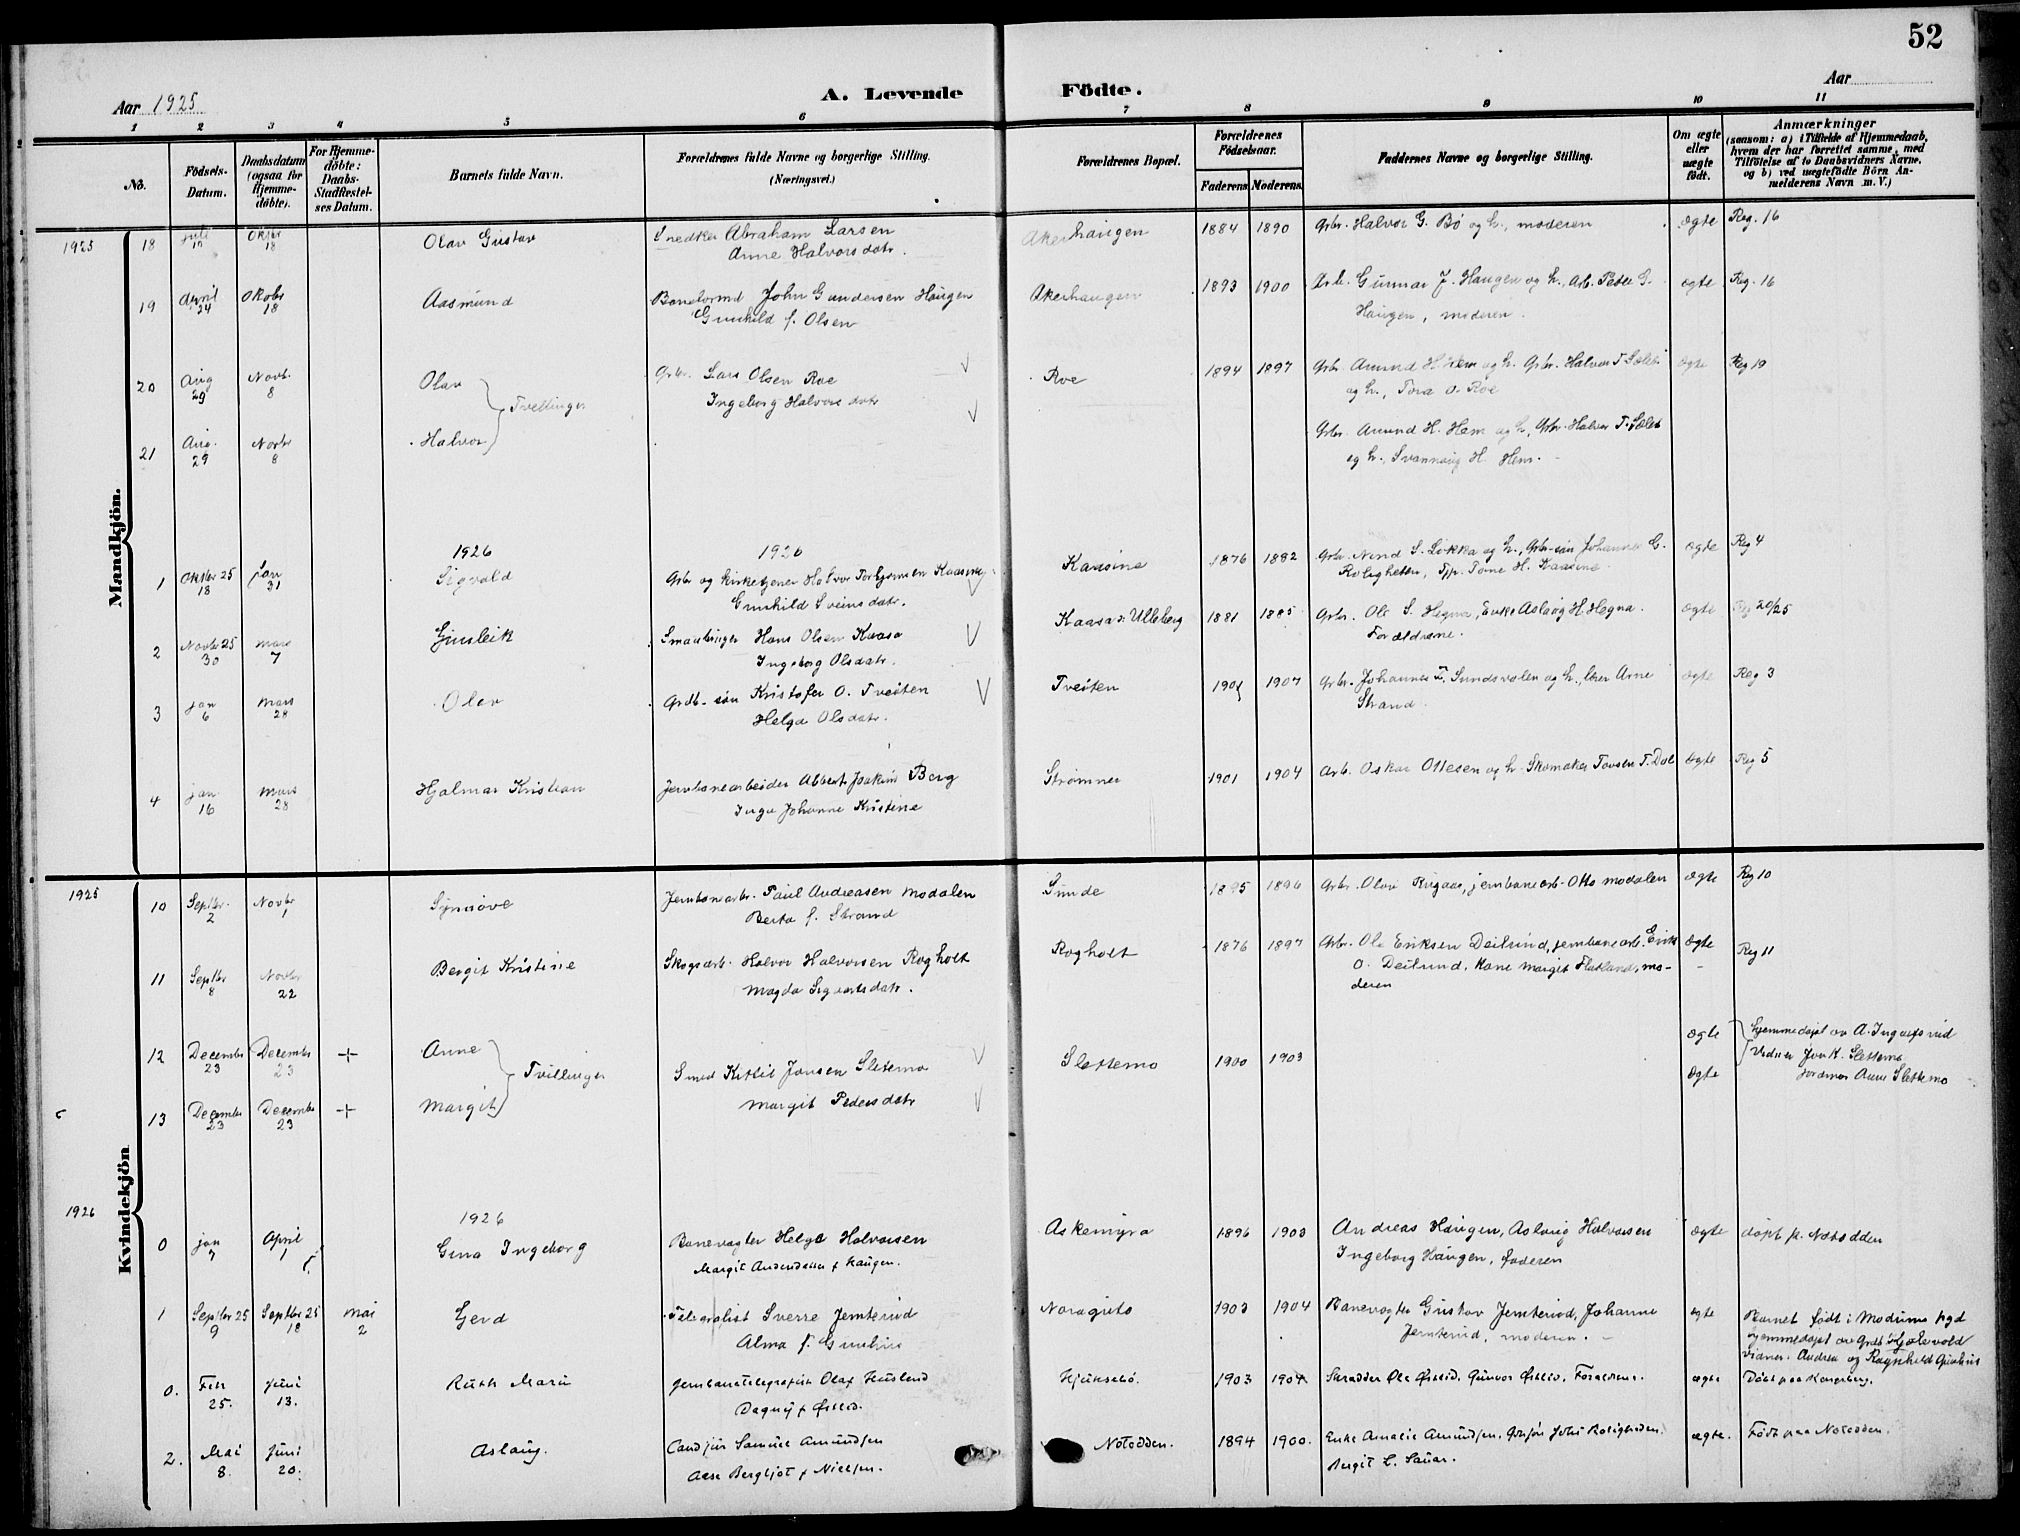 52
Aar 1925
A. Levende Födte.
Aar
1 2 3 4 5 6 7 8 9 10 11
No.
Födsels-Datum.
Daabsdatum (ogsaa for Hjemmedöbte).
For Hjemmedöbte: Daabs-Stadfæstelses Datum.
Barnets fulde Navn.
Forældrenes fulde Navne og borgerlige Stilling. (Næringsvei.)
Forældrenes Bopæl.
Forældrenes Födselsaar.
Faderens Moderens
Faddernes Navne og borgerlige Stilling.
Om ægte eller uægte födt.
Anmærkninger
(saasom: a) i Tilfælde af Hjemmedaab, hvem der har forrettet samme, med Tilföielse af to Daabsvidners Navne, og b) ved uægtefödte Börn Anmelderens Navn m. V.)
Mandkjön.
1925 18 Juli Oktbr 18 Olav Gustav Snedker Abraham Larsen Akerhaugen 1884 1890 Gbr. Halvor G. Bø og h., moderen ægte Reg. 16
Anne Halvorsdatr.
19 April 24 Oktbr 18 Aasmund John Gundersen Haugen Akerhaugen 1893 1900 Arb. Gunnar J. Haugen og h., Arb. Peder G. ægte Reg. 16
Gunhild f. Olsen Haugen, moderen.
20 Aug 29 Novbr. 8 Olav Gbr. Lars Olsen Roe Roe 1894 1897 Gbr. Amund H Hem og h. Gbr. Halvor T. ægte Reg 19
Tvillinger Ingeborg Halvorsdatr og h., Tora O. Roe
21 Aug. 29 Novbr 8 Halvor Gbr. Amund H. Hem og h., Gbr. Halvor T.
og h., Svannaug H. Hem.
1926 1926
1 Oktbr 25 18 Jan 31 Sigvald Gbr og kirketjener Halvor Kaasine 1876 1882 Gbr. S. Løkka og h., Gbr-søn Johannes G. ægte Reg 4
Gunhild Sveinsdatr. Roligheten, Tone H. Kaasine
2 Novbr 25 30 mars 7 Gunleik Smaabruger Hans Olsen Kaasa Kaasa Ulleberg 1881 1885 Gbr. Ole S. Hegna, Enke Aslaug H. Hegna. ægte Reg 20/25
Ingeborg Olsdatr. Forældrene.
3 Jan 6 Mars 28 Olav Grdb.-søn Kristofer O. Tveiten Tveiten 1901 1907 Gbr. Johannes Sundsvolen og h., Arne ægte Reg 3
Helga Olsdatr. Strand
4 Jan 16 Mars 28 Hjalmar Kristian Jernbanearbeider Albert Joakim Berg Strømnes 1901 1904 Arb. Oskar Ottesen og h. Skomaker T. Dal ægte Reg 5
Inga Johanne Kristine
Kvindekjön
1925 10 Septbr. 2 Novbr 1 Synnøve Jernbanearb. Paul Andreasen Modalen Sunde 1895 1896 Gbr. Olav Rugaas, jernbanearb. Otto Modalen ægte Reg 10
Berta f. Strand
11 Septbr 8 Novbr 22 Bergit Kristine Skogsarb. Halvor Halvorsen Rogholt Rogholt 1876 1897 Gbr. Ole Eriksen Deilrind, jernbanearb. Erik ægte Reg 11
Magda Sigvartsdatr. O. Deilrind, Kone Margit Flatland, mo-
deren
12 December 23 December 23 + Anne ægte hjemmedøpt av A. Ingolfsrud
Tvillinger Smed Kittil Jonsen Slettemo Slettemo 1900 1903 Vidner Jon K. Slettemo
ægte Jordmor Anne Slettemo
13 December 23 December 23 + Margit Margit Pedersdatr
1926 1926
0 Jan 7 April 1 Gina Ingeborg Banevogter Helge Halvorsen Askemyra 1896 1903 Andreas Haugen, Aslaug Halvorsen ægte døpt p. Notodden
Margit f. Haugen. Ingeborg Haugen, faderen
1 Septbr 25 9 Septbr 25 18 Mai 2 Gerd Telegrafist Sverre Jemterud Noragutu 1903 1904 Banevogter Gustav Jemterud, Johanne ægte Barnet født i Modum pgd
Alma f. Jemterud, moderen. hjemmedøpt av
vidner. Andrea og Ragnhild
0. Feb 25. Juni 13. Ruth Marie Jernbanetelegrafist Olaf Huslend Hjuksebø. 1903 1904 Skrædder Ole Østlid, Gunvor Østlid, Forældrene. ægte Døbt paa Kongsberg.
Dagny f Østlid.
2. Mai 8. Juni 20. Aslaug. Cand jur Samuel Amundsen Notodden. 1894 1900. Enke Amalie Amundsen, John Roligheden. ægte. Født paa Notodden.
Aase Bergljot f Nielsen. Bergit L. Sauar.